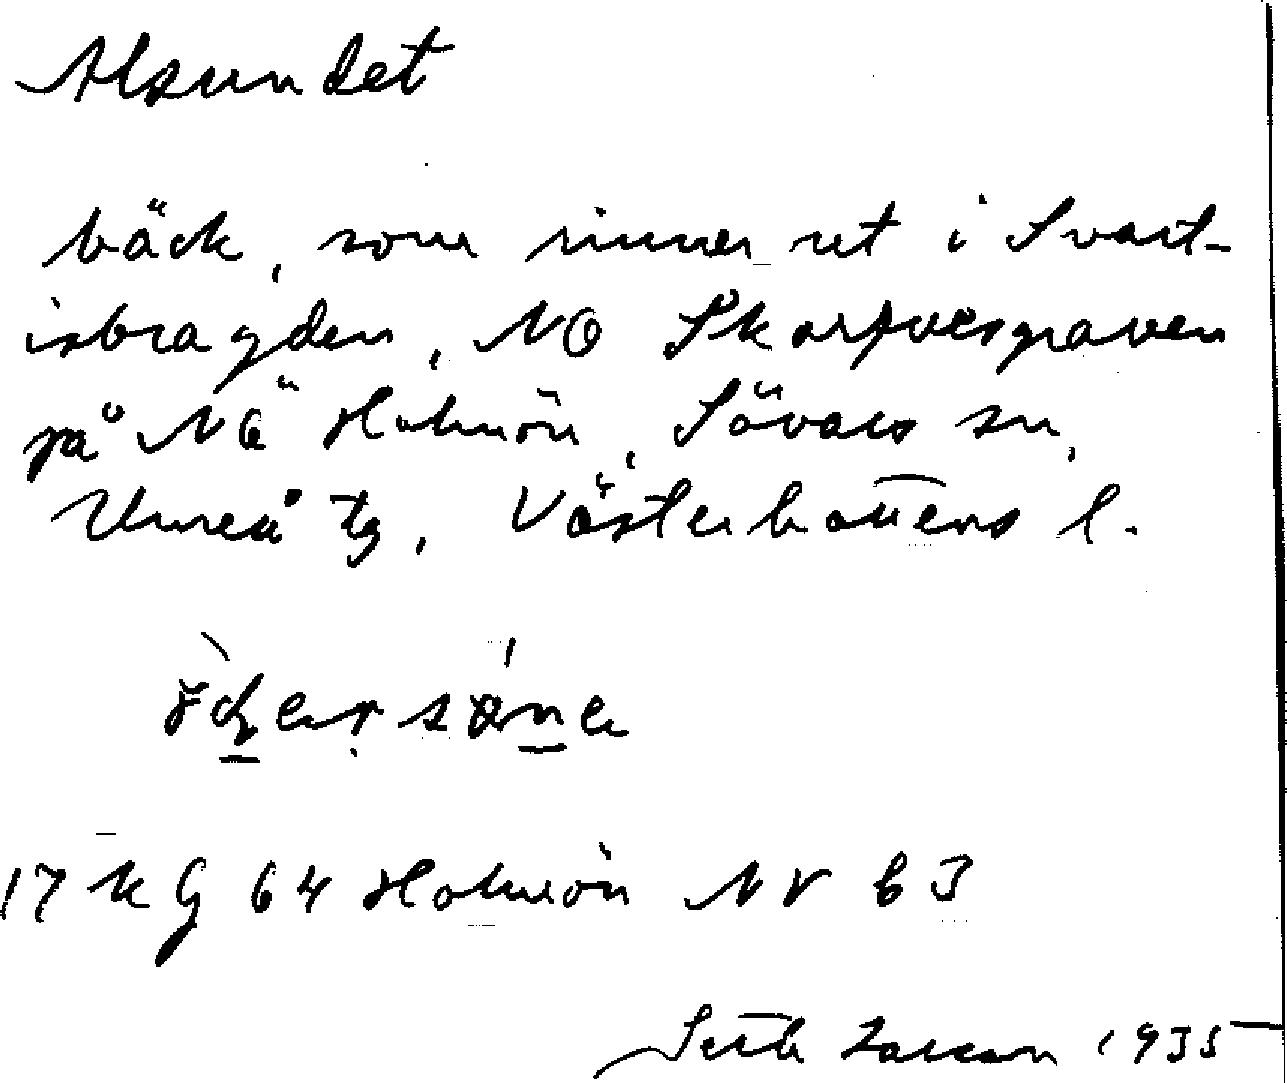 Alsundet
bäck, som rinner ut i Svart-
isbragden, NO Skarpvesgraven
på NÖ Holmön, Sävars sn,
Umeå tg, Västerbottens l.
17 k G 64 Holmön NV b 3
Seth Larsson 1935